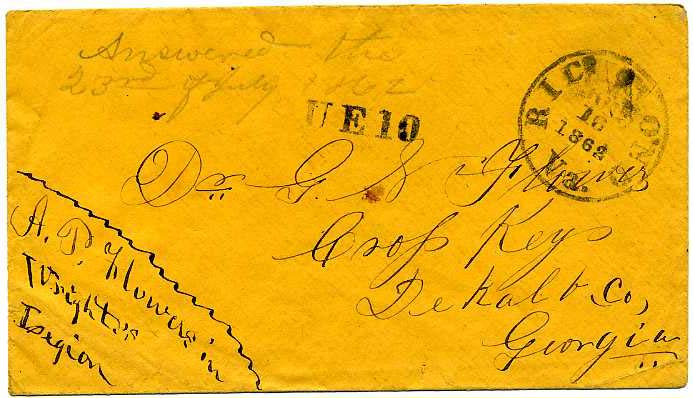 Answered the
23rd of July 1862
U E 10
RICHMOND
1862
Va.
Dr. G. W. Flowers
Cross Keys
DeKalb Co,
Georgia
A. P. Flowers in
Wright's
Legion